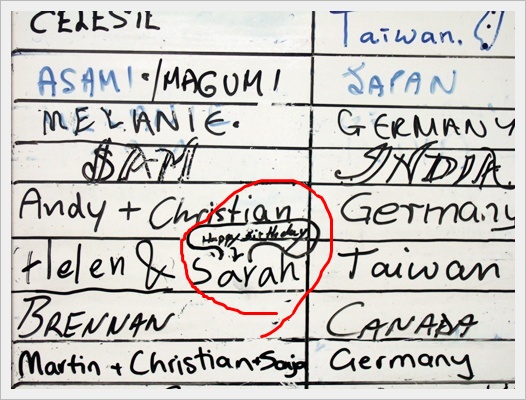 CELESTE Taiwan.
ASAMI・/MAGUMI JAPAN
MELANIE. GERMANY
SAM INDIA
Andy + Christian Germany
Happy Birthday
Helen & Sarah Taiwan
BRENNAN CANADA
Martin + Christian + Sonja Germany